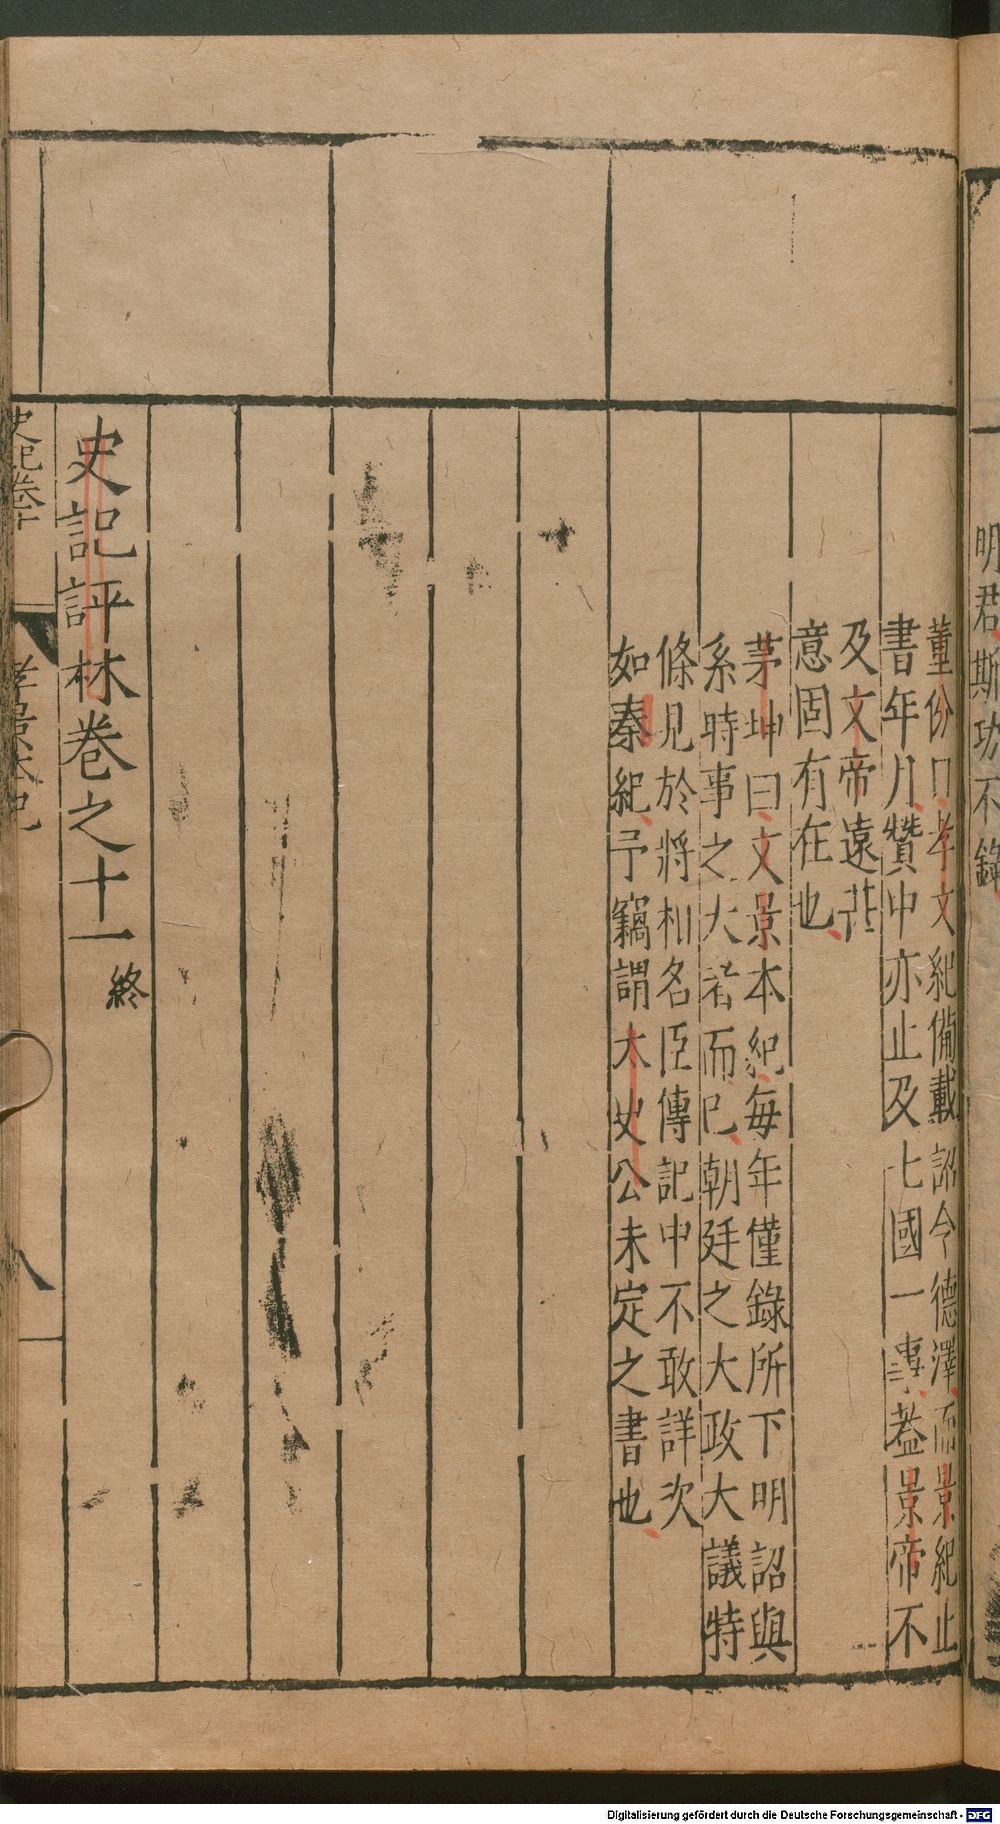 明君斯功不錄
董份曰孝文紀備載詔令德澤而景紀止
書年月贊中亦止及七國一事葢景帝不
及文帝遠
意固有在也
茅坤曰文景本紀每年僅錄所下明詔與
系時事之大者而已朝廷之大政大議特
條見於將相名臣傳記中不敢詳次
如秦紀予竊謂太史公未定之書也
史記評林卷之十一 終
史記卷十
孝景本紀
八
Digitalisierung gefördert durch die Deutsche Forschungsgemeinschaft - DFG